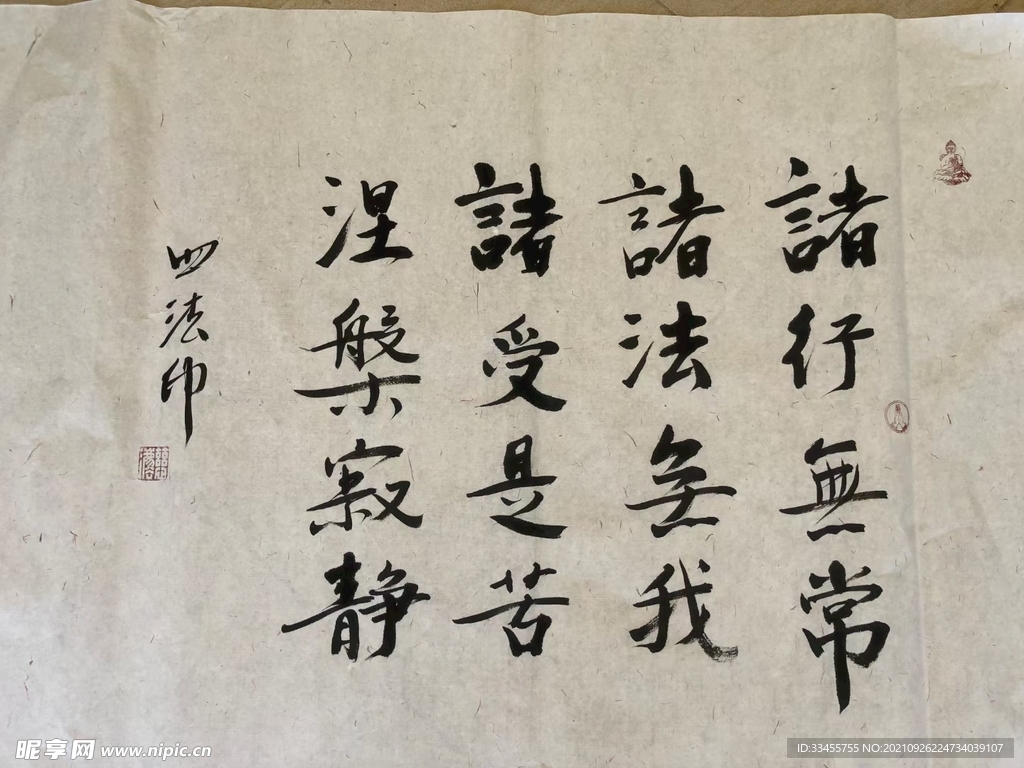 諸行無常
諸法無我
諸受是苦
涅槃寂静
四法印
昵享网 www.nipic.cn
ID:33455755 NO:20210926224734039107